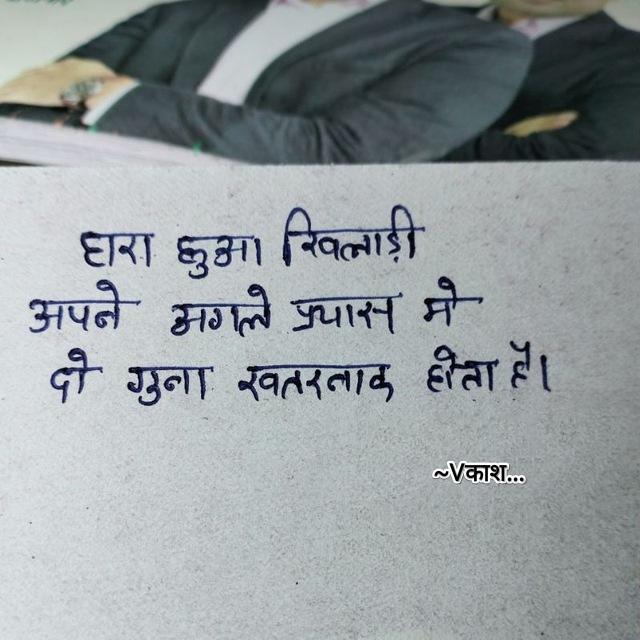 हारा हुआ खिलाड़ी
अपने अगले प्रयास मे
दो गुना खतरनाक होता है।
~Vकाश...